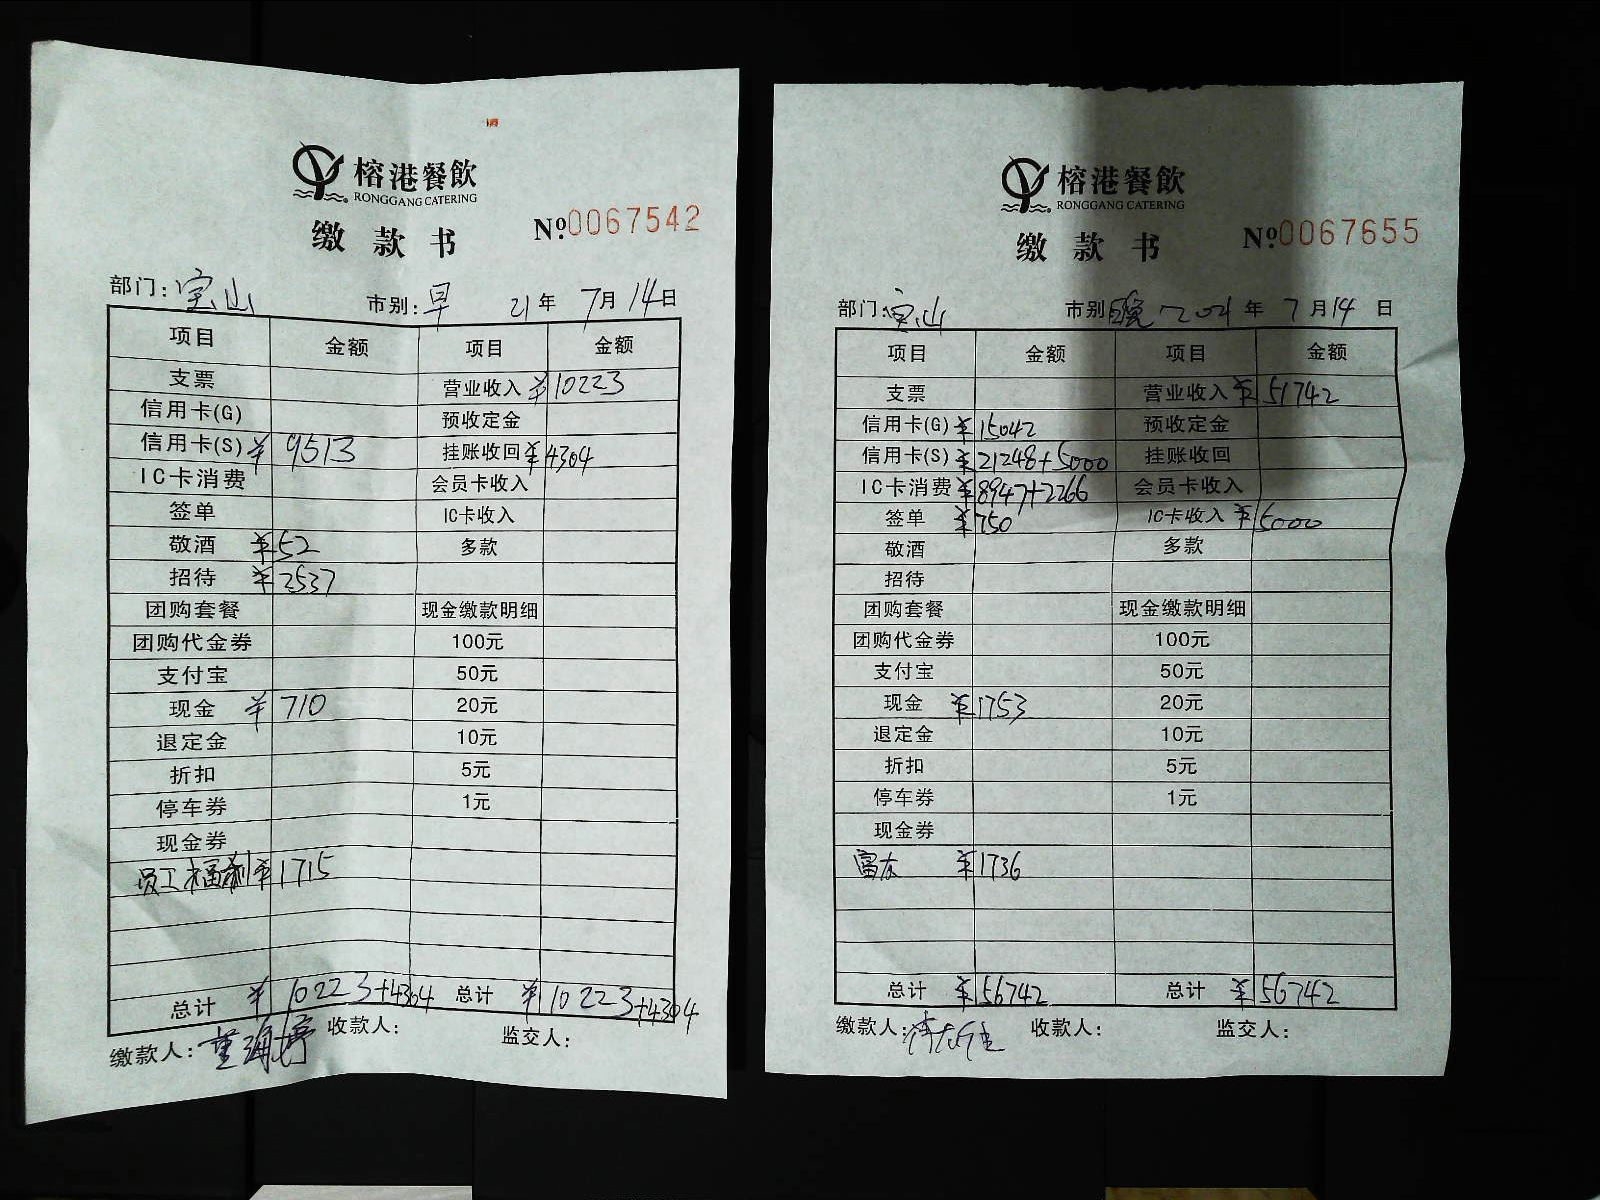 榕港餐飲
RONGGANG CATERING
缴款书
Nº:0067542
部门:宝山 市别:早 21年 7月14日
项目 金额 项目 金额
支票 营业收入 ¥10223
信用卡(G) 预收定金
信用卡(S) ¥9513 挂账收回 ¥4304
IC卡消费 会员卡收入
签单 IC卡收入
敬酒 ¥52 多款
招待 ¥2537
团购套餐 现金缴款明细
团购代金券 100元
支付宝 50元
现金 ¥710 20元
退定金 10元
折扣 5元
停车券 1元
现金券
员工福利 ¥1715
总计 ¥10223+4304 总计 ¥10223+4304
缴款人:董海婷 收款人: 监交人:
榕港餐飲
RONGGANG CATERING
缴款书
Nº:0067655
部门:宝山 市别:晚 2021年 7月14日
项目 金额 项目 金额
支票 营业收入 ¥51742
信用卡(G) ¥15042 预收定金
信用卡(S) ¥21248+5000 挂账收回
IC卡消费 ¥8947+2266 会员卡收入
签单 ¥750 IC卡收入 ¥5000
敬酒 多款
招待
团购套餐 现金缴款明细
团购代金券 100元
支付宝 50元
现金 ¥1753 20元
退定金 10元
折扣 5元
停车券 1元
现金券
富友 ¥1736
总计 ¥56742 总计 ¥56742
缴款人: 收款人: 监交人: